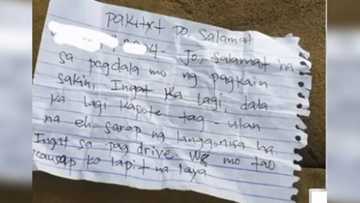 Pakitxt po salamat
Jo, salamat
sa pagdala mo ng pagkain
sakin, Ingat ka lagi, dala
ka lagi kapote tag-ulan
na eh. Sarap na langgonisa ha.
Ingat sa pag drive. Wg mo tao
causap ko lapit na laya